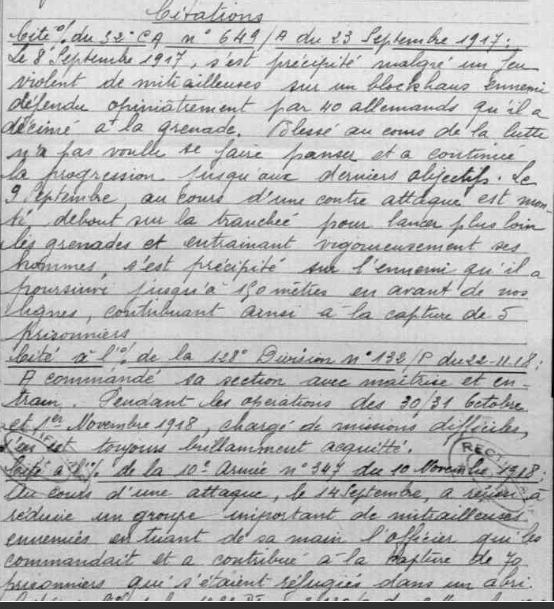 Citations
Cité o/. du 32e CA n° 649/A du 23 Septembre 1917:
Le 8 Septembre 1917, s'est précipité malgré un feu
violent de mitrailleuses sur un blockhaus ennemi
défendu opiniâtrement par 40 allemands qu'il a
décimé à la grenade. Blessé au cours de la lutte
n'a pas voulu se faire panser et a continué
la progression jusqu'aux derniers objectifs. Le
9 Septembre, au cours d'une contre attaque est mon-
té debout sur la tranchée pour lancer plus loin
les grenades et entrainant vigoureusement ses
hommes, s'est précipité sur l'ennemi qu'il a
poursuivi jusqu'à 150 mètres en avant de nos
lignes, contribuant ainsi à la capture de 5
prisonniers
Cité à l'o/. de la 128e Division n° 132/P du 22-11.18:
A commandé sa section avec maîtrise et en-
train. Pendant les opérations des 30/31 Octobre
et 1er Novembre 1918, chargé de missions difficiles,
s'en est toujours brillamment acquitté.
Cité à l'o/. de la 10e Armée n° 347 du 10 Novembre 1918:
Au cours d'une attaque, le 14 Septembre, a réussi à
réduire un groupe important de mitrailleuses
ennemies en tuant de sa main l'officier qui les
commandait et a contribué à la capture de 79
prisonniers qui s'étaient réfugiés dans un abri.
RECT